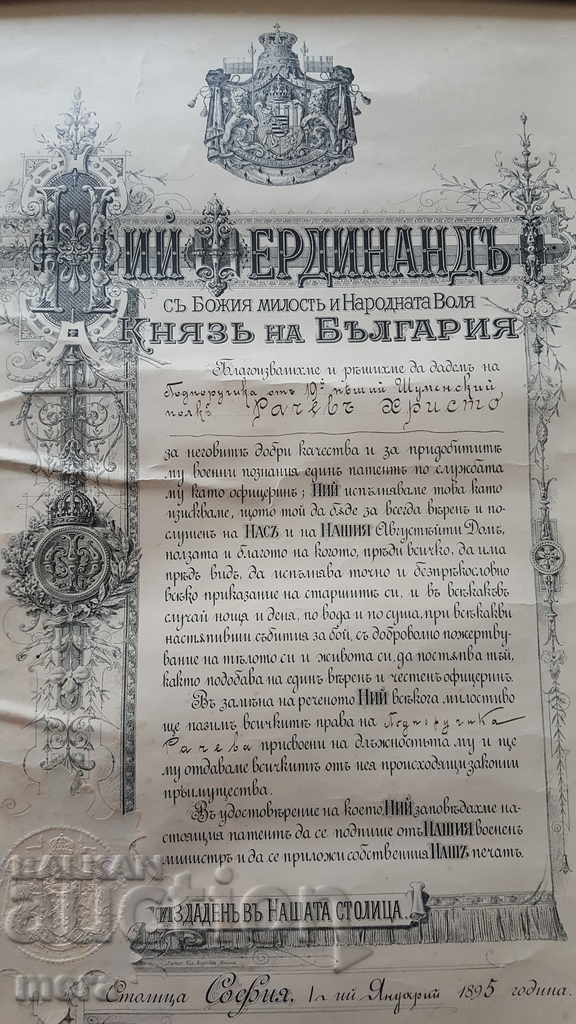 НИЙ ФЕРДИНАНДЪ
СЪ БОЖИЯ МИЛОСТЬ И НАРОДНАТА ВОЛЯ
КНЯЗЬ НА БЪЛГАРИЯ
Благоизволихме и рѣшихме да дадемъ на
Подпоручика отъ 19ий пѣший Шуменский
полкъ Рачевъ Христо
за неговитѣ добри качества и за придобититѣ
му военни познания единъ патентъ по службата
му като офицеринъ; НИЙ испълняваме това като
изискваме, щото той да бѫде за всегда вѣренъ и по-
слушенъ на НАСЪ и на НАШИЯ Августѣйши Домъ,
ползата и благото на когото, прѣди всичко, да има
прѣдъ видъ, да испълнява точно и безпрѣкословно
всѣко приказание на старшитѣ си, и въ всѣкакъвъ
случай нощя и деня, по вода и по суша, при всѣкакви
настѫпивши събития за бой, съ доброволно пожертву-
вание на тѣлото си и живота си, да постѫпва тъй,
както подобава на единъ вѣренъ и честенъ офицеринъ.
Въ замѣна на реченото НИЙ всѣкога милостиво
ще пазимъ всичкитѣ права на Подпоручика
Рачева присвоени на длъжностьта му и ще
му отдаваме всичкитѣ отъ нея происходящи законни
прѣимущества.
Въ удостовѣрение на което НИЙ заповѣдахме на-
стоящия патентъ да се подпише отъ НАШИЯ военен
министръ и да се приложи собственния НАШЪ печатъ.
ИЗДАДЕНЬ ВЪ НАШАТА СТОЛИЦА
Столица София, 1и ий Януарий 1895 година.
BALKAN
auction